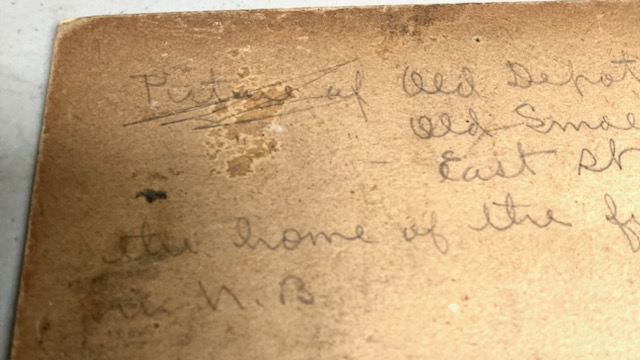 Picture of Old Depot
Old
East St
the home of the
in N.B.